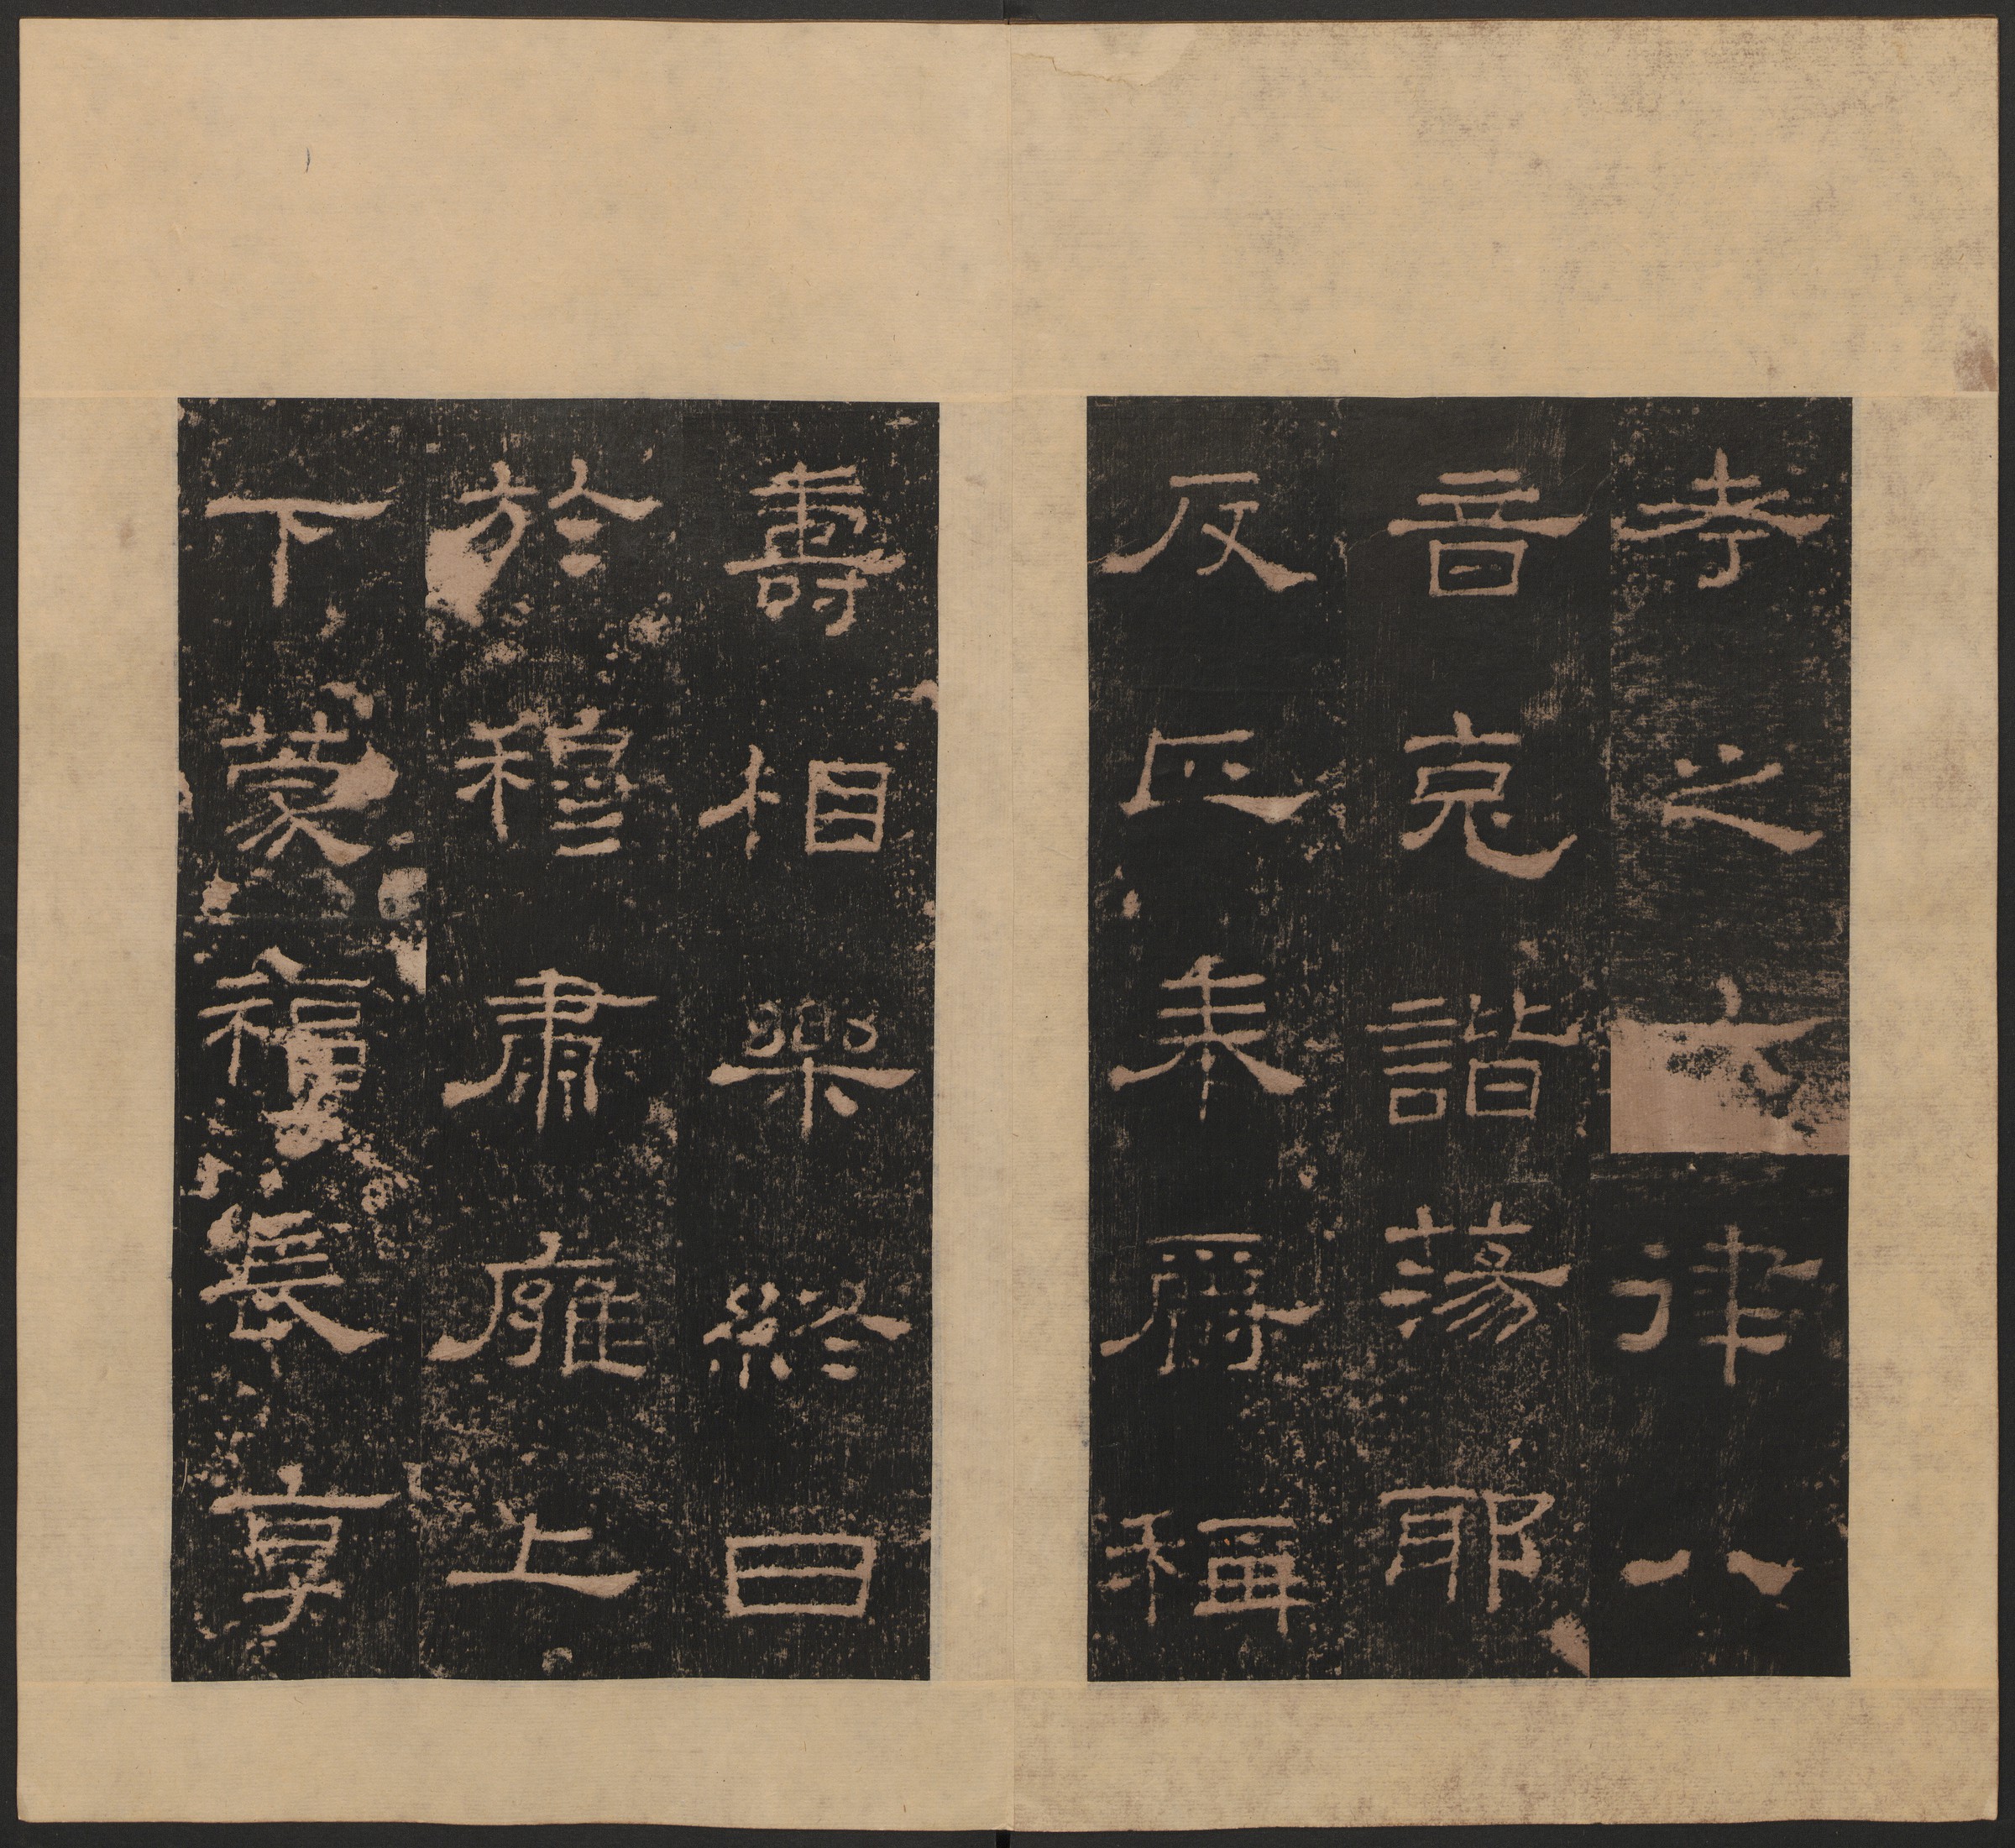 考之六律八
音克諧蕩耶
反正奉爵稱
壽相樂終日
於穆肅雍上
下蒙福長享